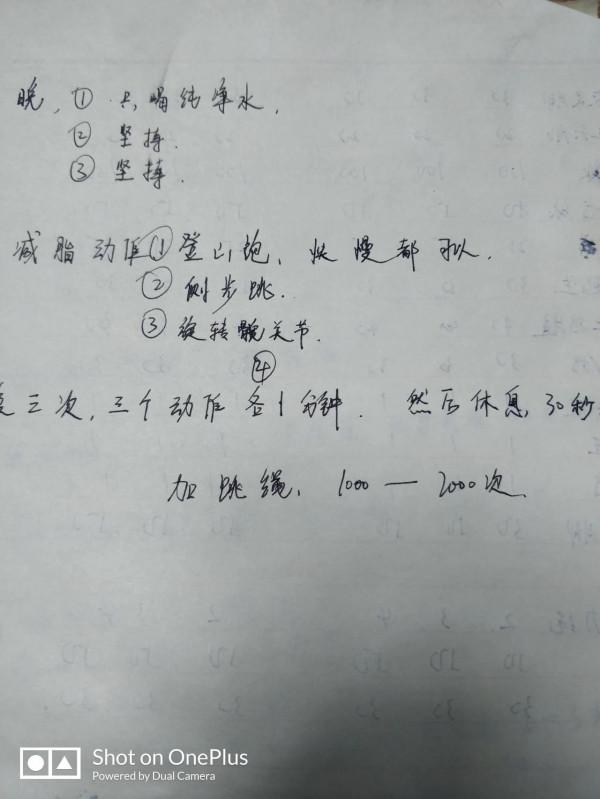 晚,① 只喝纯净水.
② 坚持.
③ 坚持.
减脂动作① 登山跑、快慢都可以.
② 侧步跳.
③ 旋转髋关节.
④
三次,三个动作各1分钟. 然后休息30秒
加跳绳, 1000 — 2000次.
Shot on OnePlus
Powered by Dual Camera